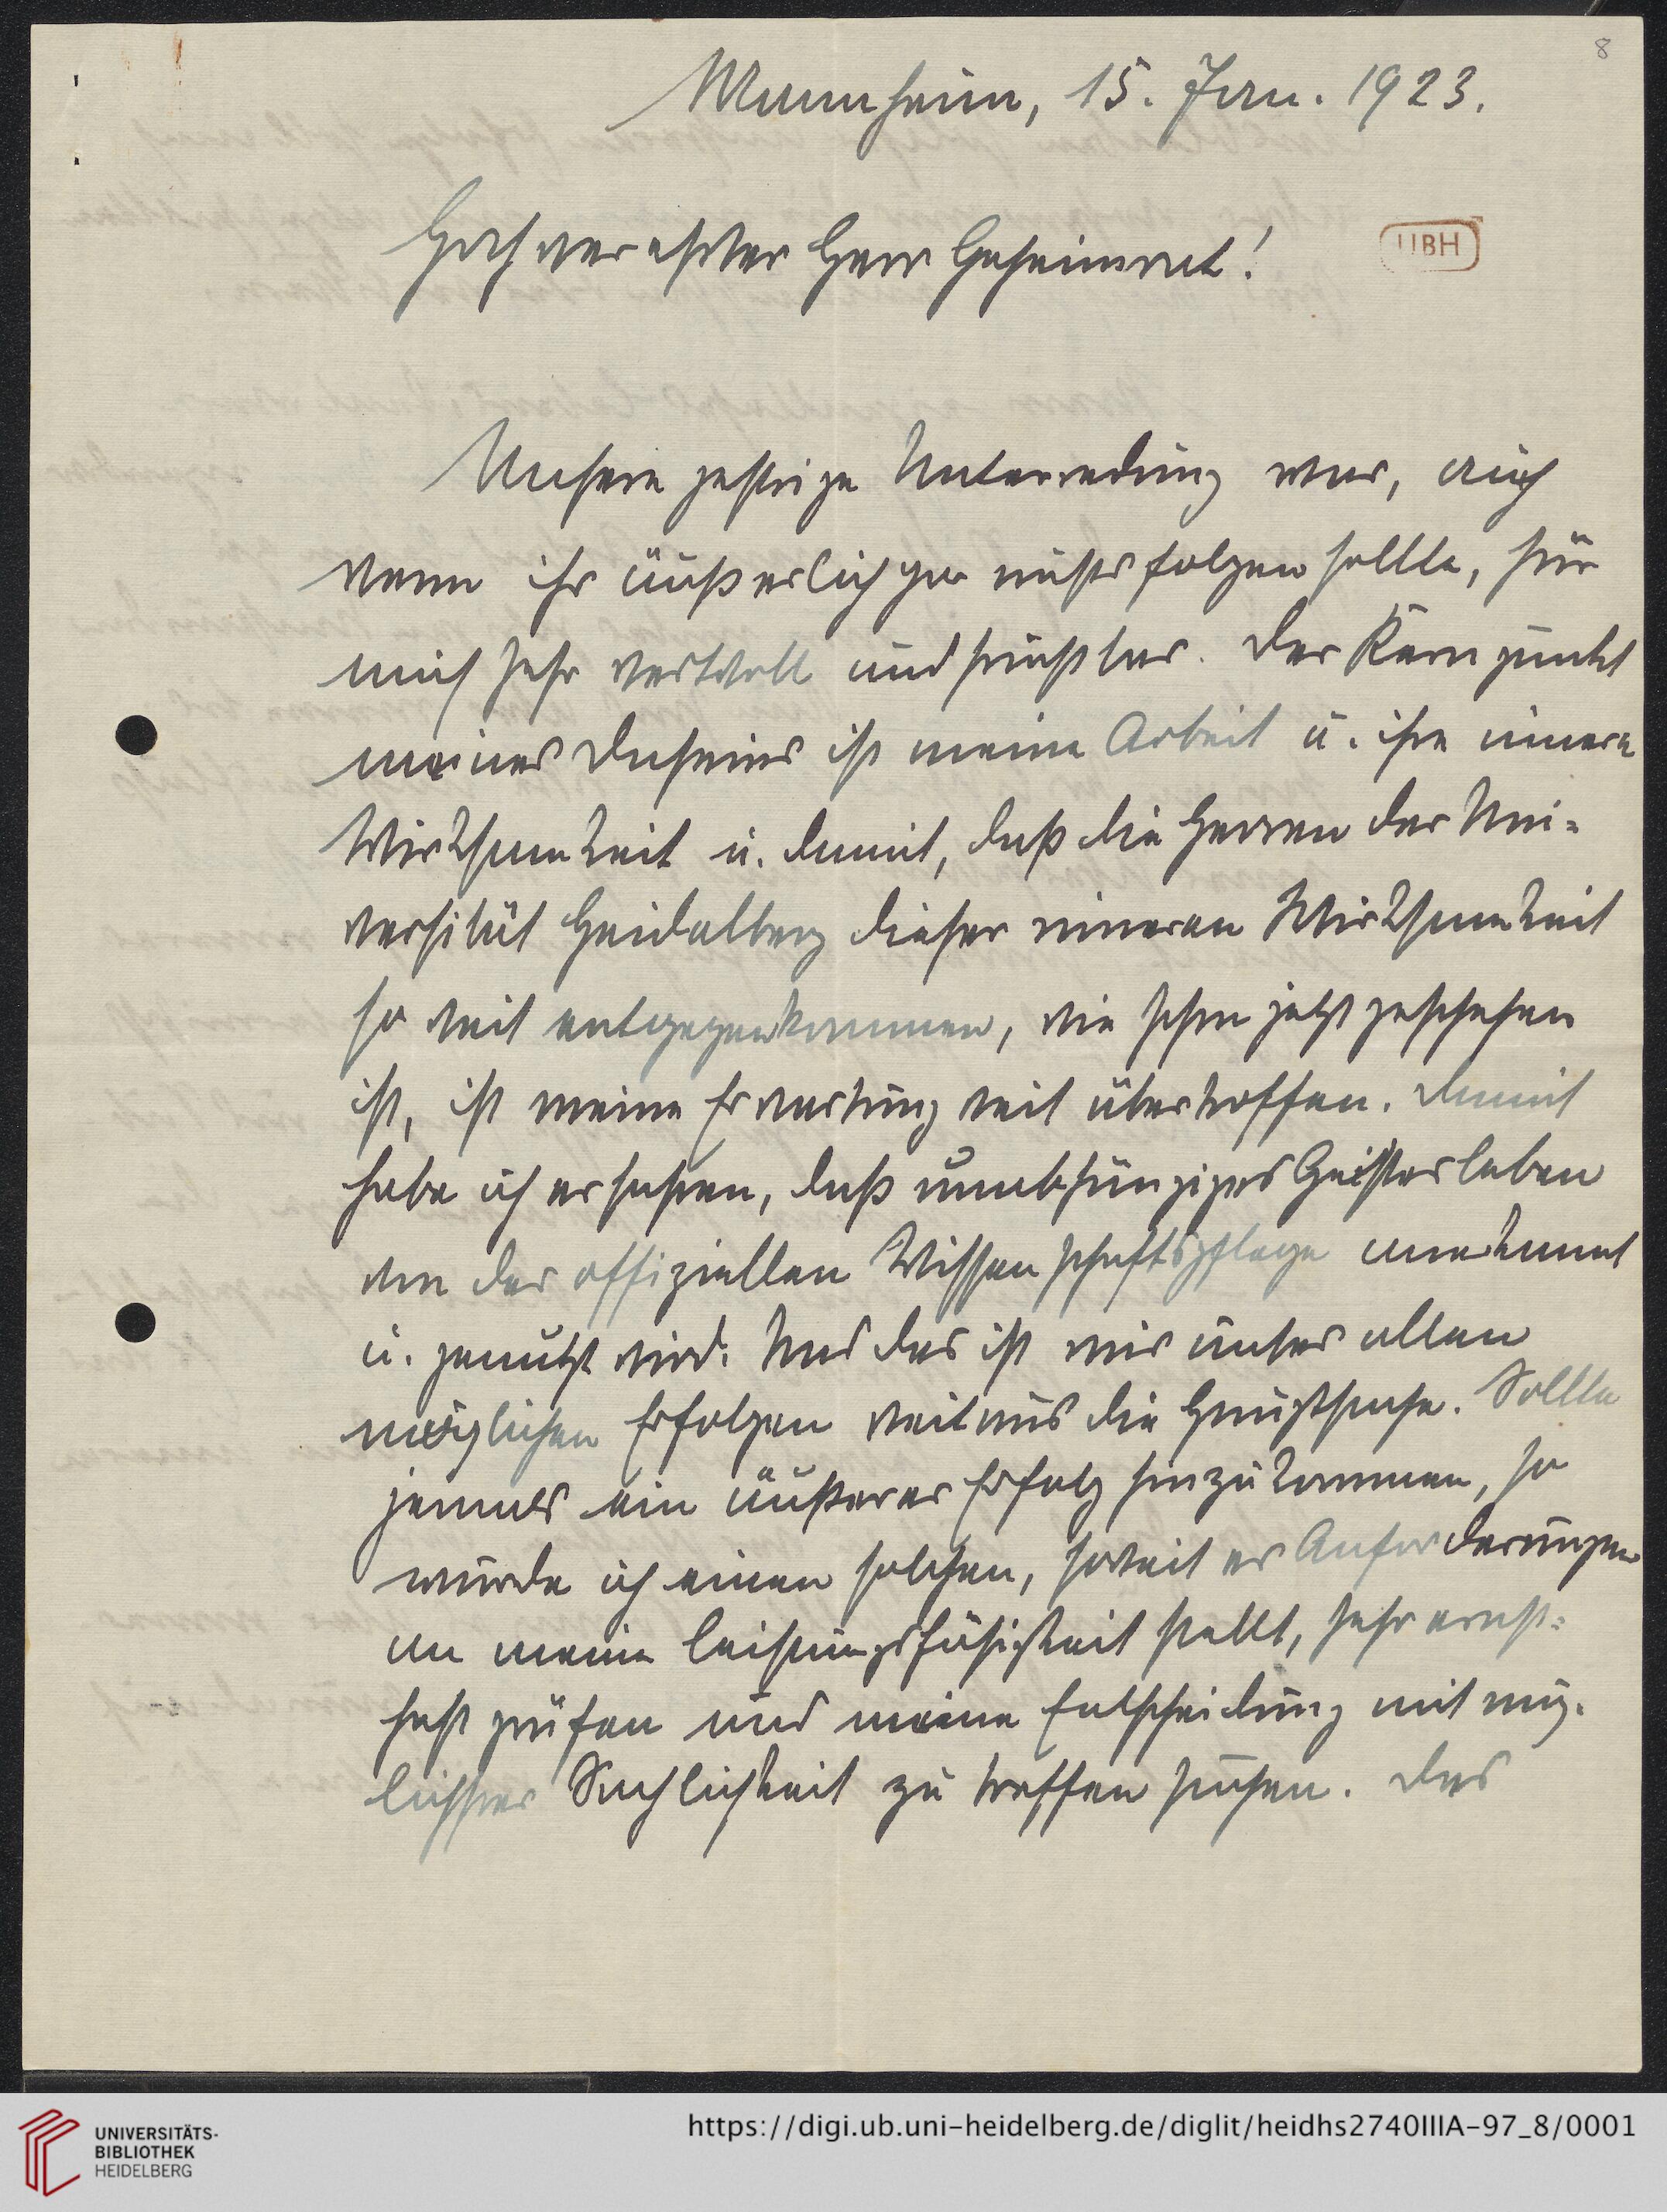 8
Mannheim, 15. Jan. 1923.
Hochverehrter Herr Geheimrat!
UBH
Unsere gestrige Unterredung war, auch
wenn ihr äußerlich gar nichts folgen sollte, für
mich sehr wertvoll und fruchtbar. Der Kernpunkt
meines Daseins ist meine Arbeit u. ihre innere
Wirksamkeit u. damit, daß die Herren der Uni-
versität Heidelberg dieser inneren Wirksamkeit
so weit entgegenkommen, wie schon jetzt geschehen
ist, ist meine Erwartung weit übertroffen. Damit
habe ich ersehen, daß unabhängiges Geistesleben
von der offiziellen Wissenschaftspflege anerkannt
u. genutzt wird. Und das ist mir unter allen
möglichen Erfolgen weitaus die Hauptsache. Sollte
jemals ein äußerer Erfolg hinzukommen, so
würde ich einen solchen, soweit er Anforderungen
an meine Leistungsfähigkeit stellt, sehr ernst-
haft prüfen und meine Entscheidung mit mög-
lichster Sachlichkeit zu treffen suchen. Das
UNIVERSITÄTS-
BIBLIOTHEK
HEIDELBERG
https://digi.ub.uni-heidelberg.de/diglit/heidhs2740IIIA-97_8/0001